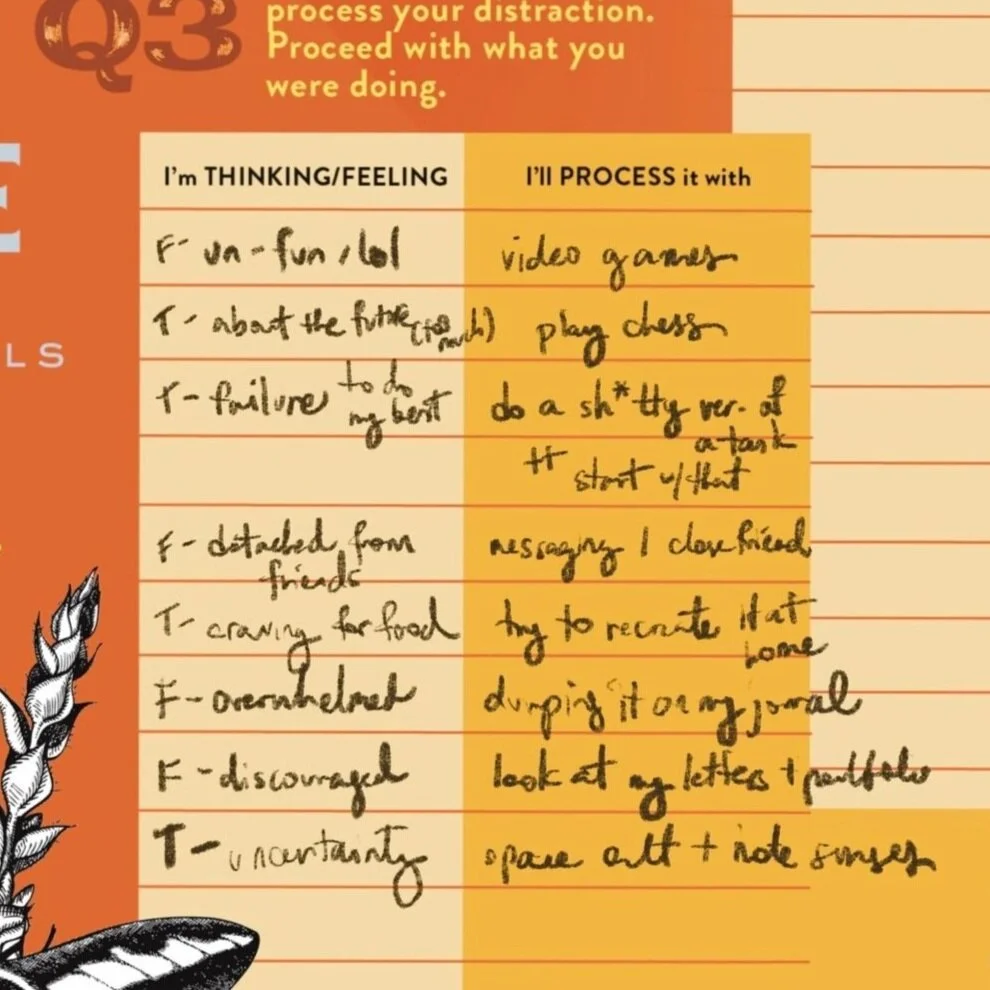 Q3
process your distraction.
Proceed with what you
were doing.
E
LS
I'm THINKING/FEELING I'll PROCESS it with
F- un-fun, lol video games
T- about the future (too much) play chess
T- failure to do my best do a sh*tty ver. of
a task
start w/ that
F- detached from messaging 1 close friend
friends
T- craving for food try to recreate it at
home
F- overwhelmed dumping it on my journal
F- discouraged look at my letters + portfolio
T- uncertainty space out + note senses